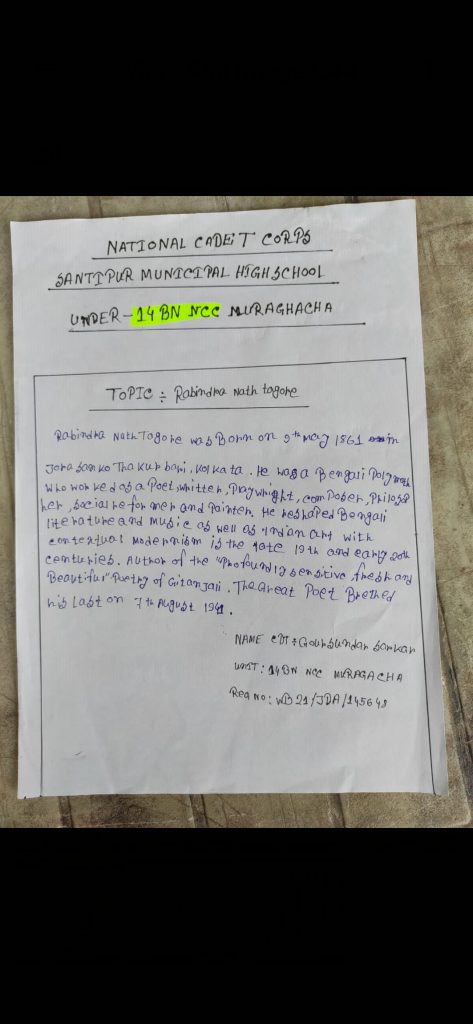 NATIONAL CADET CORPS
SANTIPUR MUNICIPAL HIGH SCHOOL
UNDER - 14 BN NCC MURAGHACHA
TOPIC ÷ Rabindra Nath tagore
Rabindra Nath Tagore was Born on 9th may 1861 in
Jorasanko Thakur bari, Kolkata. He was a Bengali Polymath
who worked as a Poet, writter, Playwright, composer, Philosop
her, social reformer and Painter. He reshaped Bengali
literature and music as well as Indian art with
contextual modernism is the late 19th and early 20th
centuries. Author of the "Profoundly sensitive fresh and
Beautiful" Poetry of Gitanjali. The Great Poet Brethed
his Last on 7th August 1941.
NAME CDT ÷ Goursundar Sarkar
UNIT : 14 BN NCC MURAGACHA
Reg No : WB21/JDA/145648